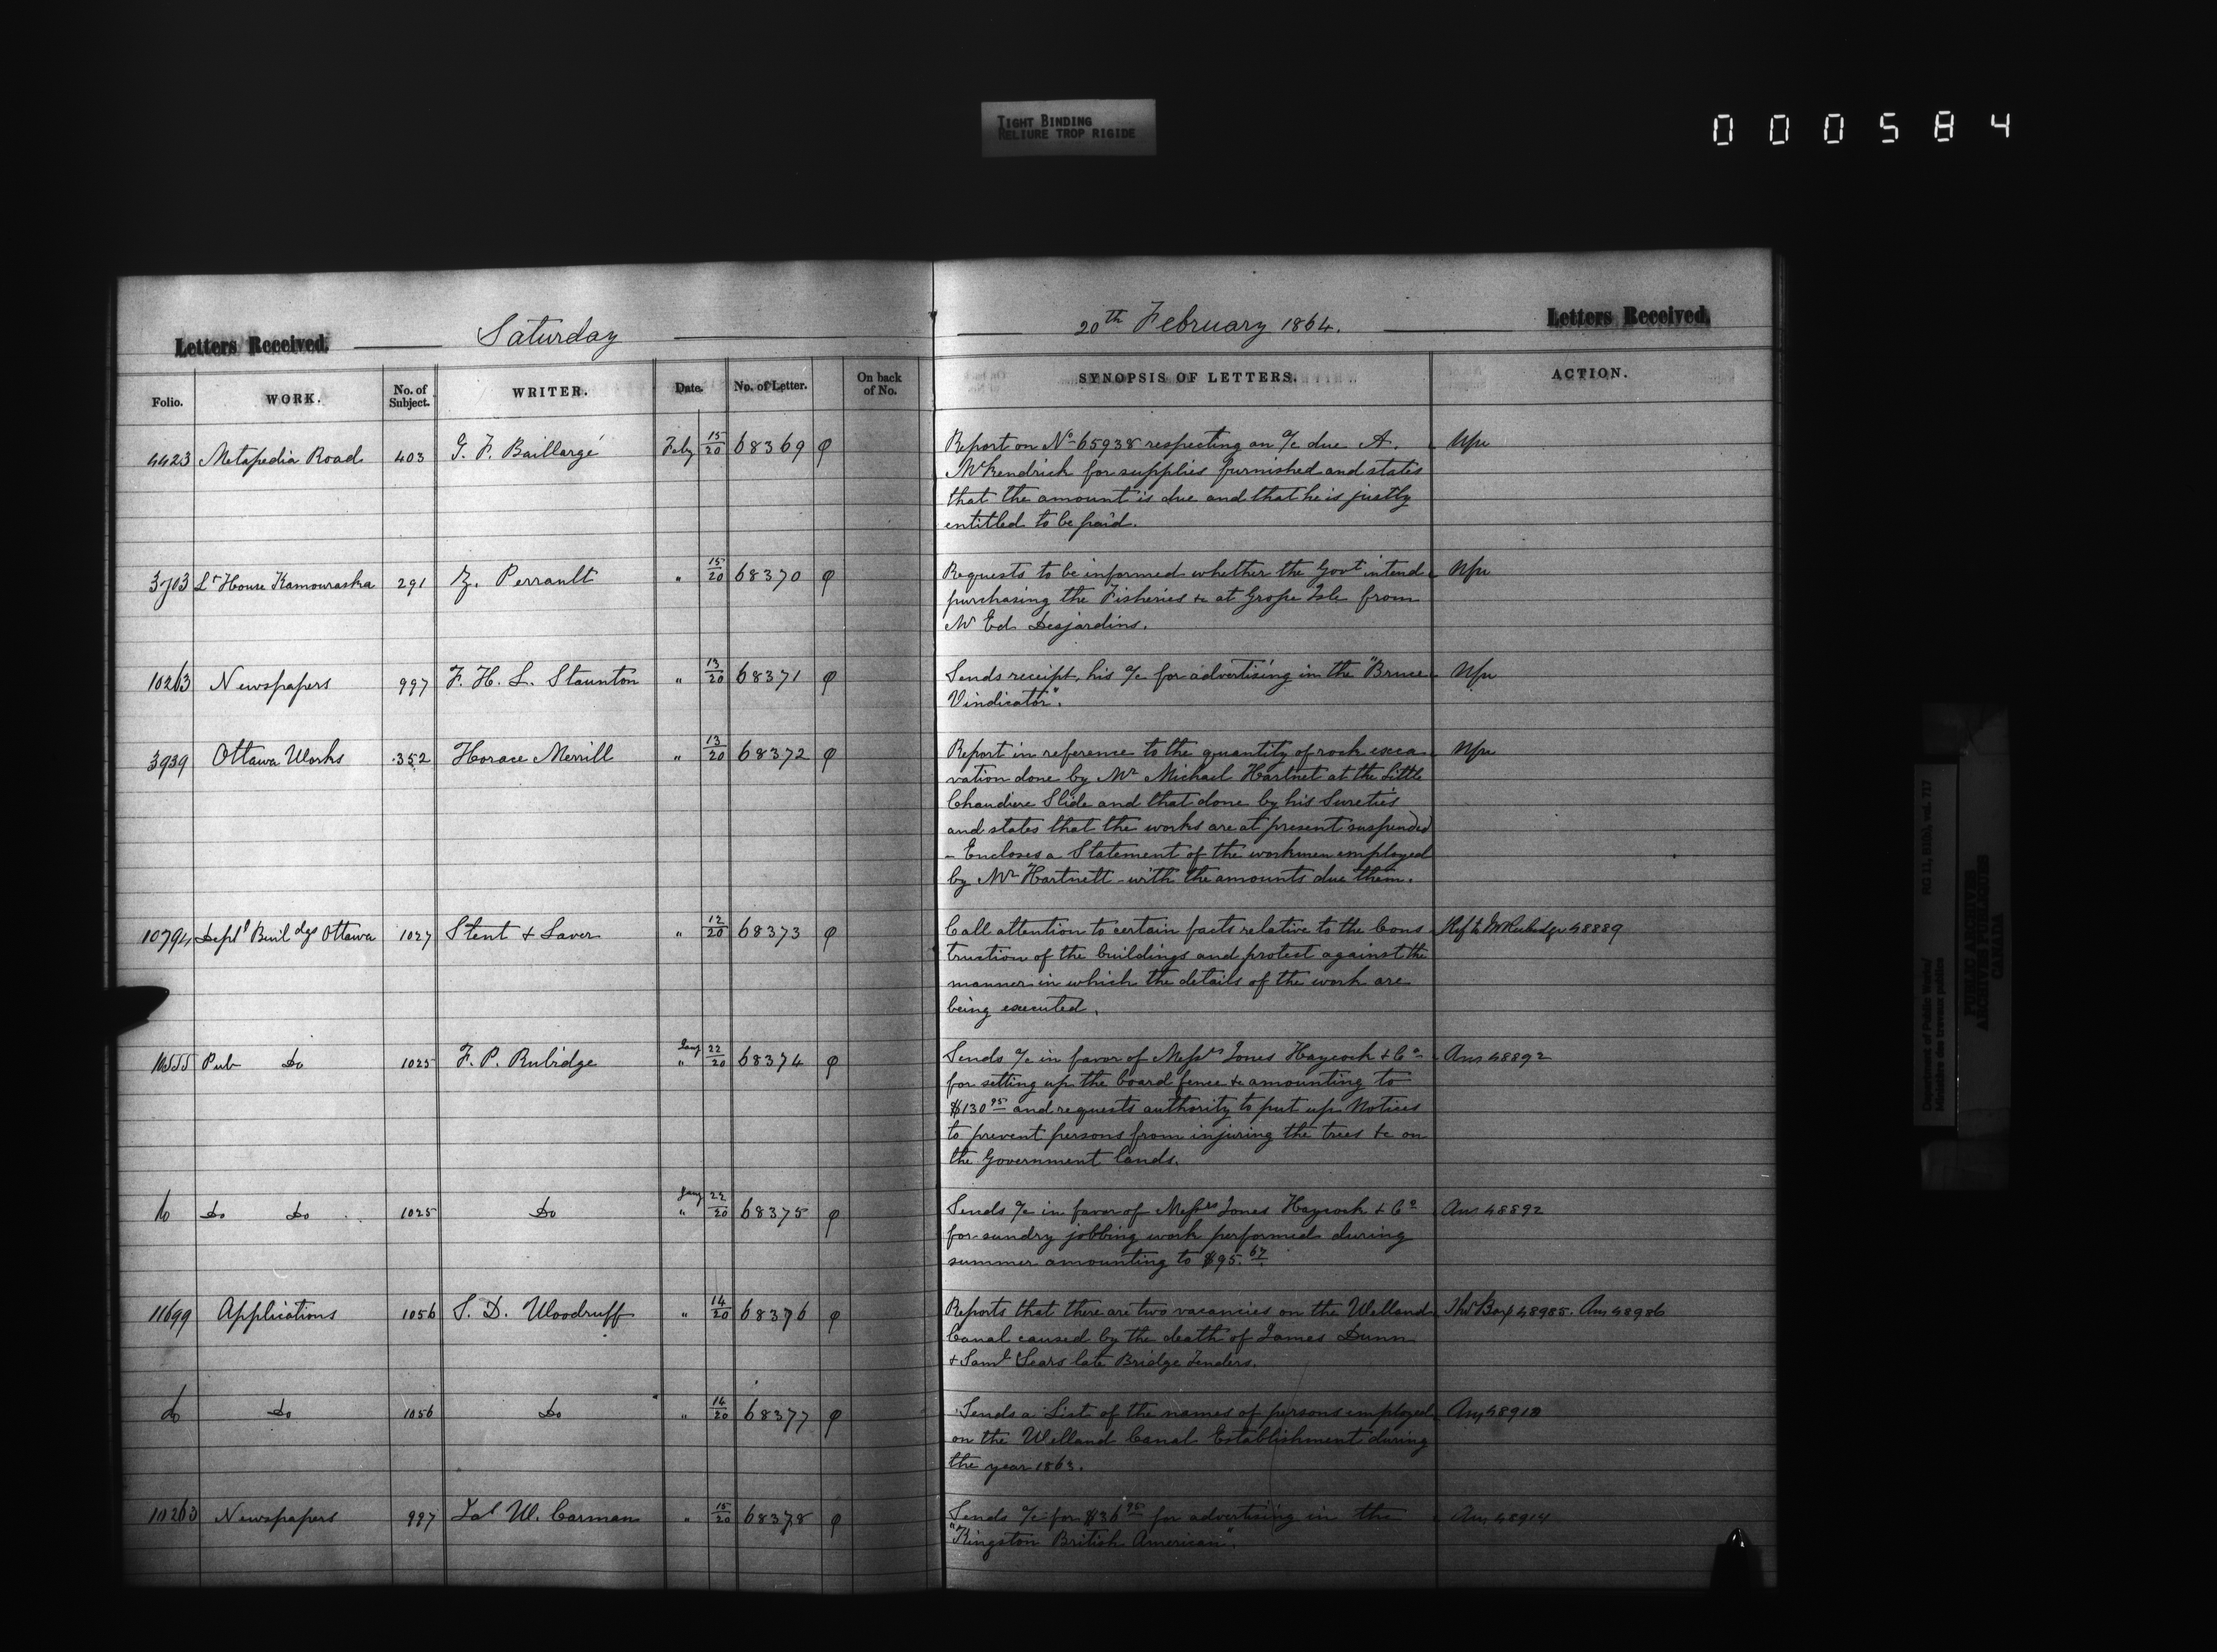 TIGHT BINDING
RELIURE TROP RIGIDE
000584
Letters Received. Saturday 20th February 1864. Letters Received.
Folio. WORK. No. of Subject. WRITER. Date. No. of Letter. On back of No. SYNOPSIS OF LETTERS. ACTION.
4423 Metapedia Road 403 G. F. Baillargé Feby 15/20 68369 φ Report on No 65938 respecting an a/c due A.
McKendrick for supplies furnished and states
that the amount is due and that he is justly
entitled to be paid.
3703 Lt House Kamouraska 291 Z. Perrault " 15/20 68370 φ Requests to be informed whether the Govt intend
purchasing the Fisheries &c at Grosse Isle from
Mr Ed. Desjardins.
10263 Newspapers 997 F. H. L. Staunton " 13/20 68371 φ Sends receipt, his a/c for advertising in the "Bruce
Vindicator".
3939 Ottawa Works 352 Horace Merrill " 13/20 68372 φ Report in reference to the quantity of rock exca
vation done by Mr Michael Hartnet at the Little
Chaudiere Slide and that done by his Sureties
and states that the works are at present suspended
– Encloses a Statement of the workmen employed
by Mr Hartnett with the amounts due them.
10794 Deptl Buildgs Ottawa 1027 Stent & Laver " 12/20 68373 φ Call attention to certain facts relative to the Cons Ref to Mr Rubidge 48889
truction of the buildings and protest against the
manner in which the details of the work are
being executed.
10555 Pub Do 1025 F. P. Rubidge Jany " 22/20 68374 φ Sends a/c in favor of Messrs Jones Haycock & Co Ans 48892
for setting up the board fence &c amounting to
$130 95 and requests authority to put up Notices
to prevent persons from injuring the trees &c on
the Government lands.
do Do Do 1025 Do Jany " 22/20 68375 φ Sends a/c in favor of Messrs Jones Haycock & Co Ans 48892
for sundry jobbing work performed during
summer amounting to $95.67
11699 Applications 1056 S. D. Woodruff " 14/20 68376 φ Reports that there are two vacancies on the Welland 48985. Ans 48986
Canal caused by the death of James Dunn
& Saml Sears late Bridge Tenders.
do Do 1056 Do " 14/20 68377 φ Sends a List of the names of persons employed
on the Welland Canal Establishment during
the year 1863.
10263 Newspapers 997 Jas W. Carman " 15/20 68378 φ Sends a/c for $36 95 for advertising in the Ans 48914
"Kingston British American".
Department of Public Works/
Ministère des travaux publics
RG 11, B1(b), vol. 717
PUBLIC ARCHIVES
ARCHIVES PUBLIQUES
CANADA